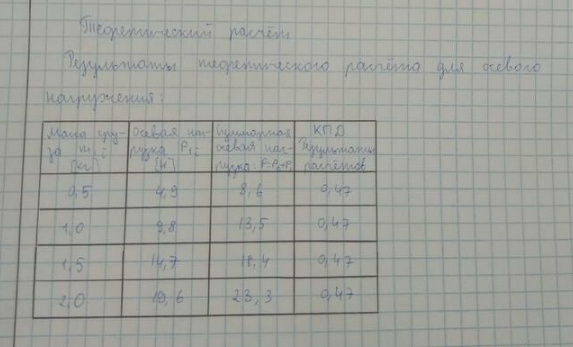 Теоретический расчёт
Результаты теоретического расчёта для осевого
нагружения:
Масса гру- Осевая наг- Суммарная КПД
за mᵢ рузка P₁ᵢ осевая наг- Результаты
(кг) (Н) рузка P=P₀+P₁ расчётов
0,5 4,9 8,6 0,47
1,0 9,8 13,5 0,47
1,5 14,7 18,4 0,47
2,0 19,6 23,3 0,47